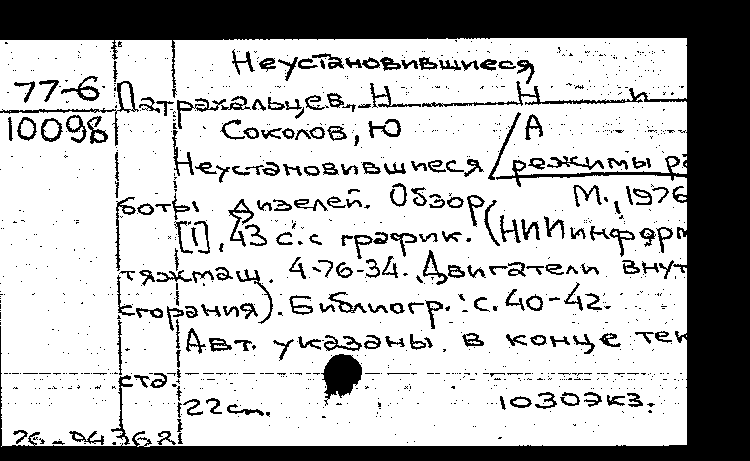 Неустановившиеся
77-6 Патрахальцев, Н Н и
10098 Соколов, Ю А
Неустановившиеся режимы ра
боты дизелей. Обзор, М., 1976
[1], 43 с. с график. (НИИинформ
тяжмаш. 4-76-34. Двигатели внут
сгорания). Библиогр.: с. 40-42.
Авт. указаны в конце тек
ста.
22 cm. 1030 экз.